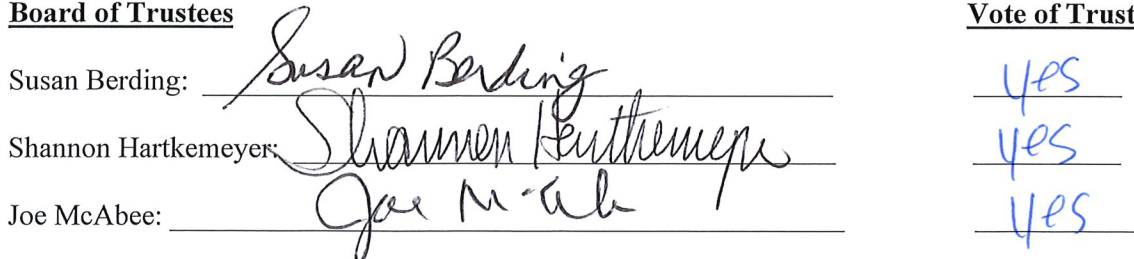 Board of Trustees Vote of Trust
Susan Berding: Susan Berding yes
Shannon Hartkemeyer: Shannon Hartkemeyer yes
Joe McAbee: Joe McAbee yes